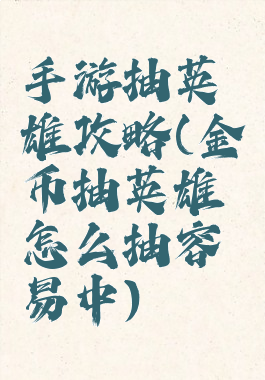 手游抽英
雄攻略(金
币抽英雄
怎么抽容
易中)